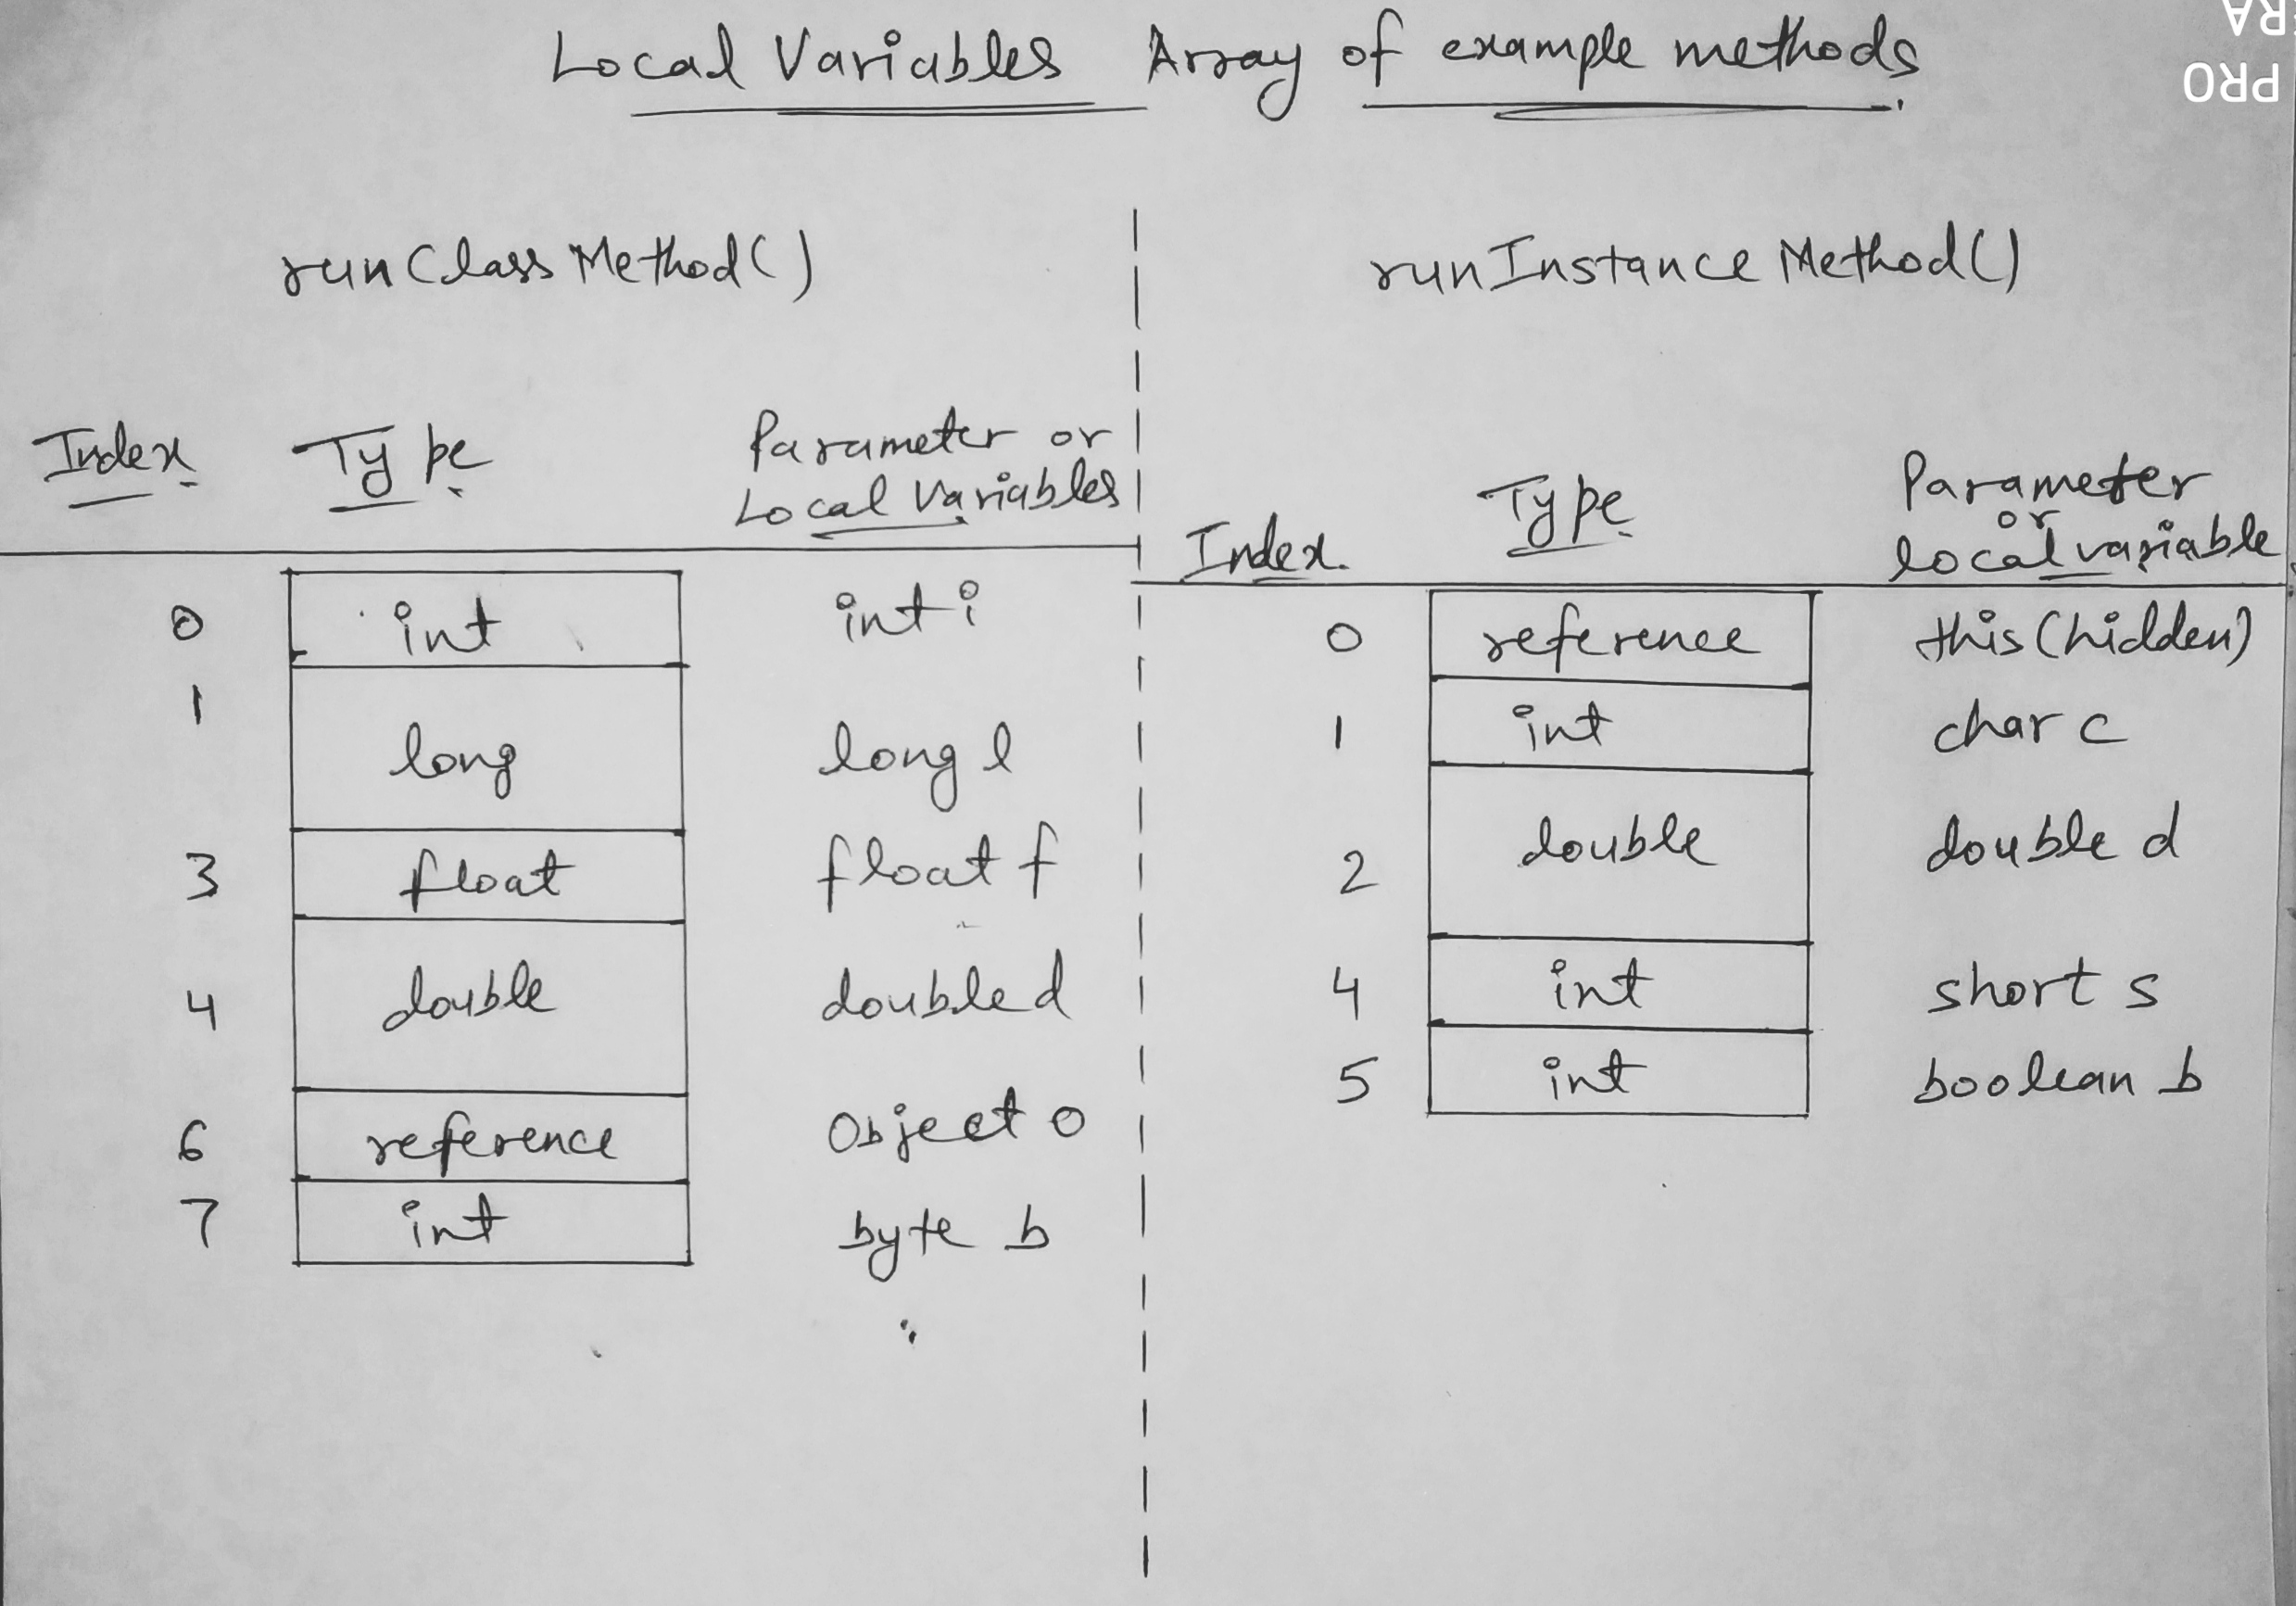 Local Variables Array of example methods
RA
PRO
runClassMethod()
Index Type Parameter or
Local Variables
0 int int i
1
long long l
3 float float f
4 double double d
6 reference Object o
7 int byte b
runInstanceMethod()
Index Type Parameter
or
local variable
0 reference this (hidden)
1 int char c
2 double double d
4 int short s
5 int boolean b